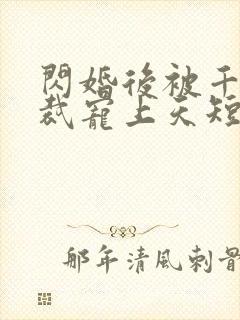 閃婚後被千
裁寵上天短
那年清風刺骨